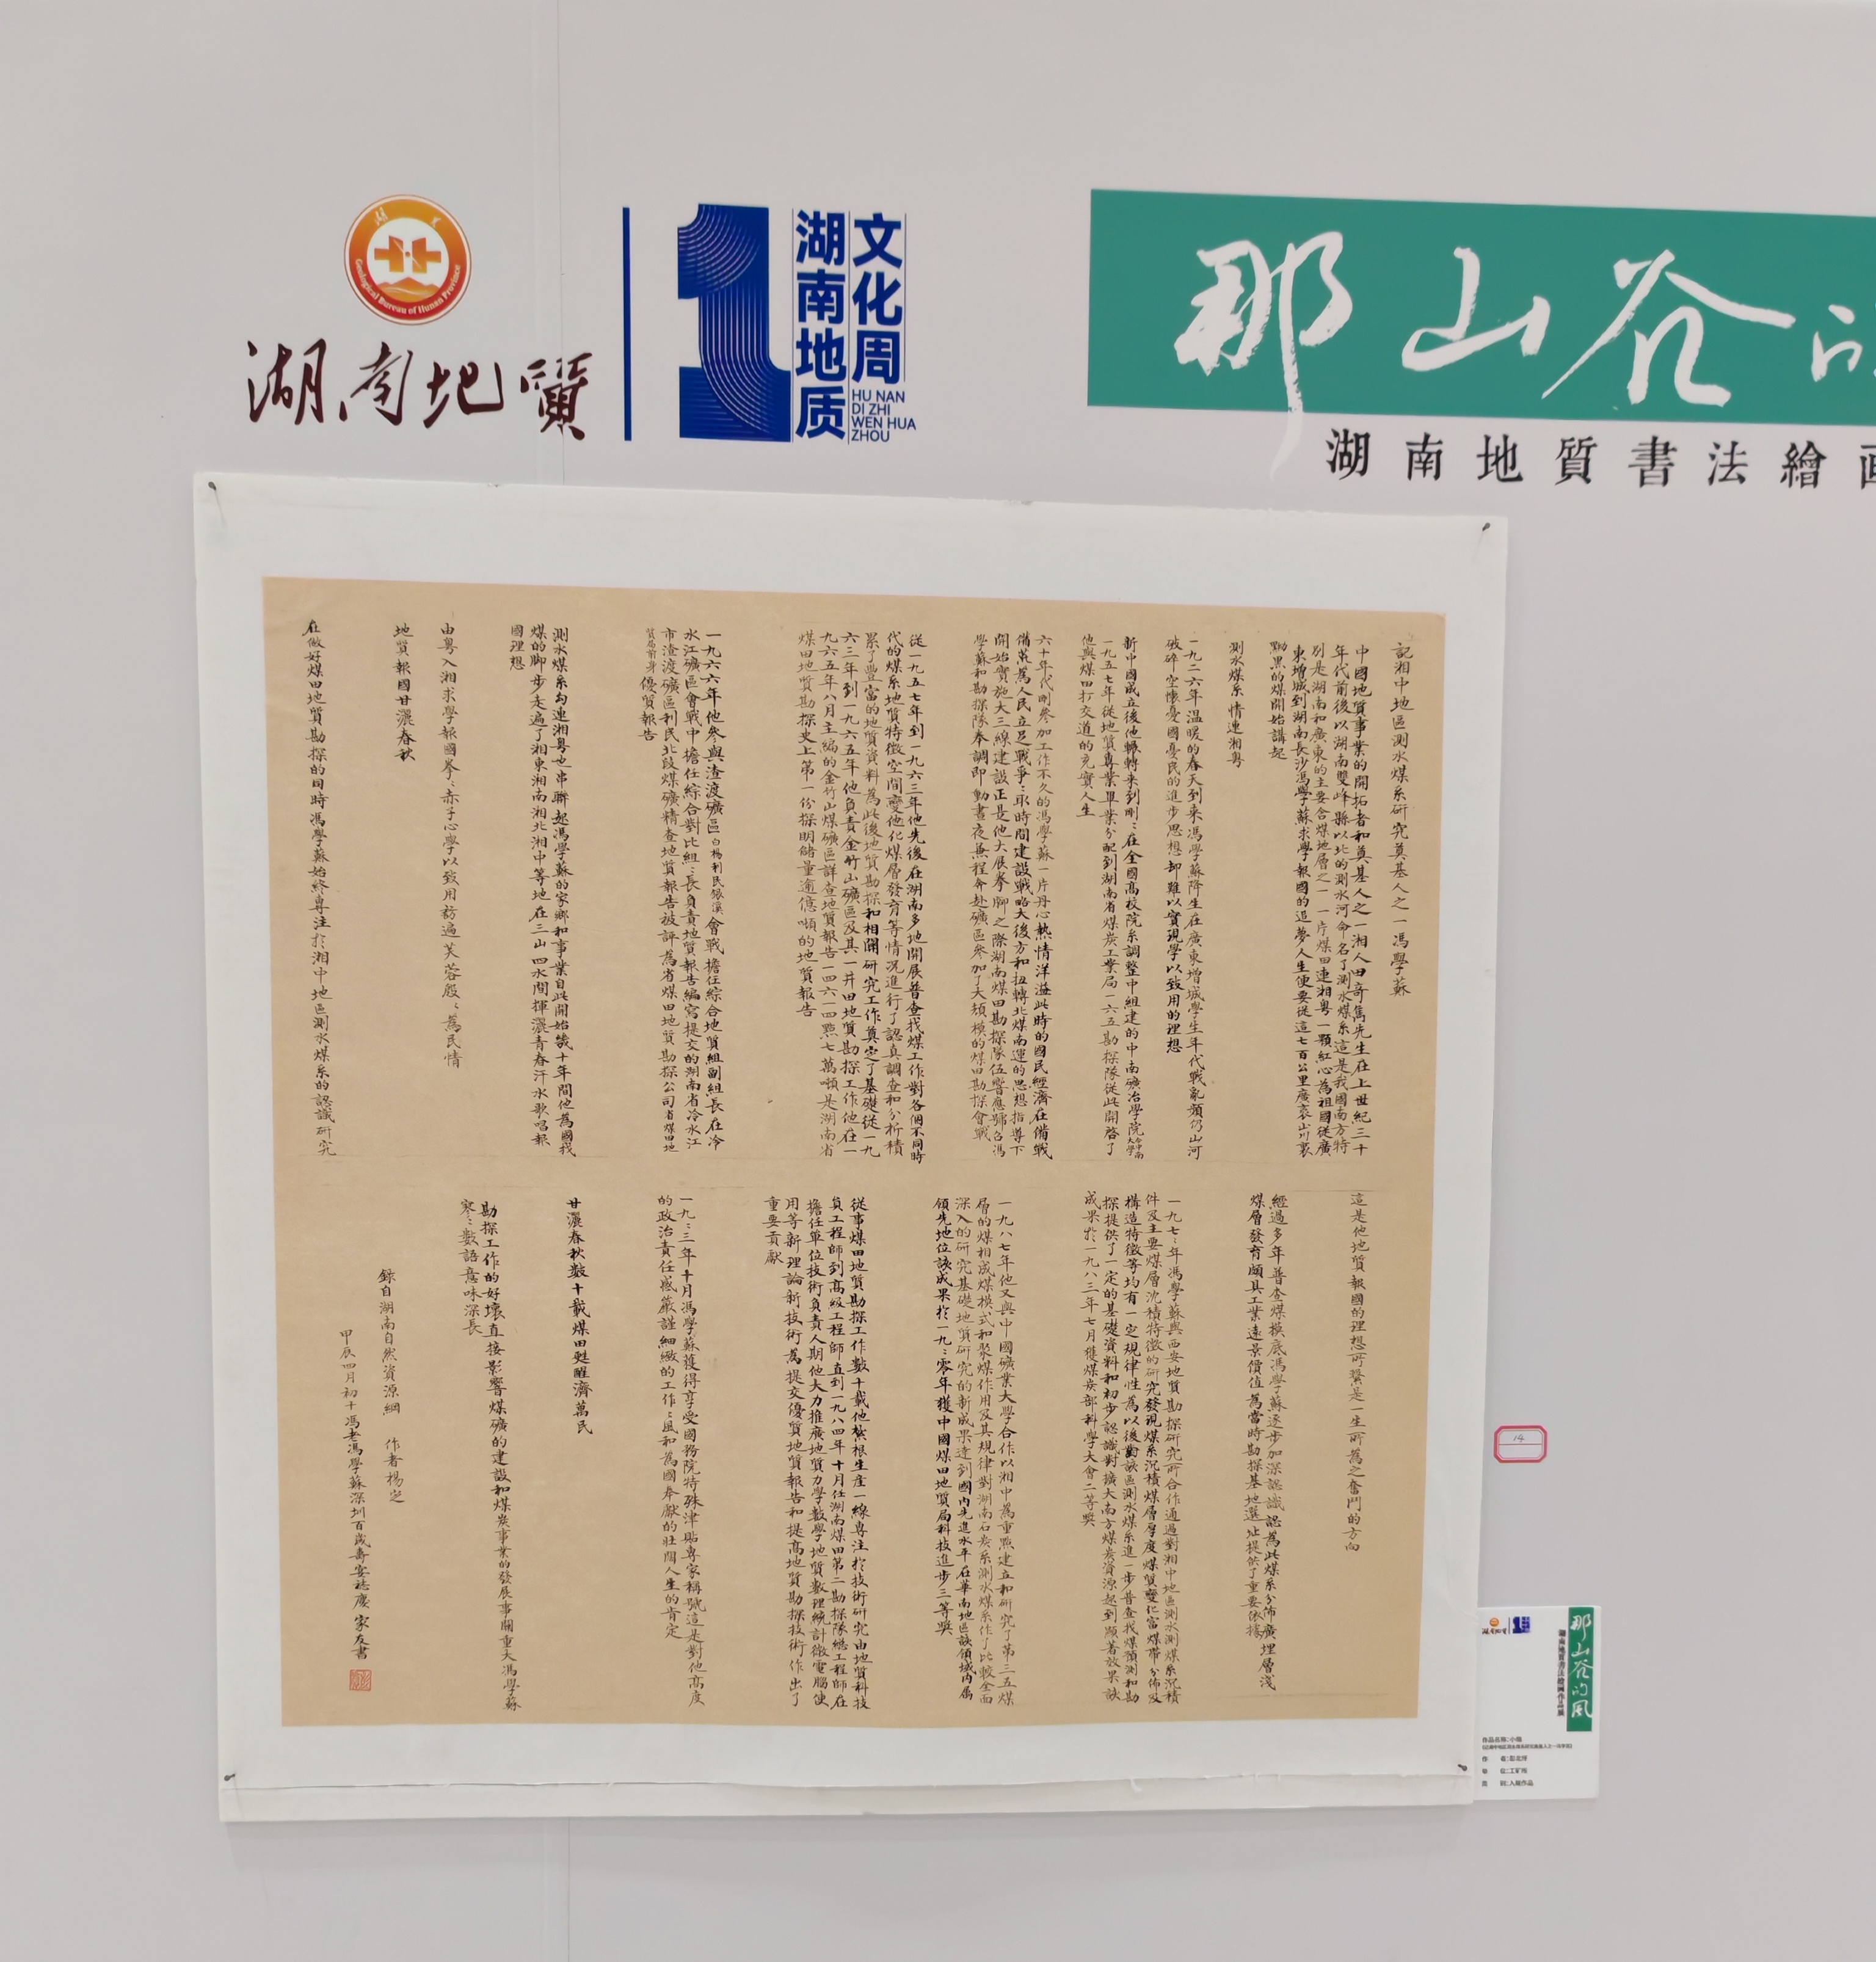 Geological Bureau of Hunan Province
湖南地質
湖南地质
文化周
HU NAN
DI ZHI
WEN HUA
ZHOU
那山谷的
湖南地質書法繪画
記湘中地區測水煤系研究奠基人之一馮學蘇
中國地質事業的開拓者和奠基人之一湘人田奇㻪先生在上世紀三十
年代前後以湖南雙峰縣以北的測水河命名了測水煤系這是我國南方特
別是湖南和廣東的主要含煤地層之一一片煤田連湘粵一顆紅心為祖國從廣
東增城到湖南長沙馮學蘇求學報國的追夢人生便要從這七百公里廣袤山川裏
黝黑的煤開始講起
測水煤系情連湘粵
一九二六年温暖的春天到来馮學蘇降生在廣東增城學生年代戰亂頻仍山河
破碎空懷憂國憂民的進步思想却難以實現學以致用的理想
新中國成立後他輾轉来到剛剛在全國高校院系調整中組建的中南礦冶學院今中南大學
一九五七年從地質專業畢業分配到湖南省煤炭工業局一六五勘探隊從此開啓了
他與煤田打交道的充實人生
六十年代剛參加工作不久的馮學蘇一片丹心熱情洋溢此時的國民經濟在備戰
備荒為人民立足戰爭争取時間建設戰略大後方和扭轉北煤南運的思想指導下
開始實施大三線建設正是他大展拳脚之際湖南煤田勘探隊伍響應號召馮
學蘇和勘探隊奉調即動晝夜兼程奔赴礦區參加了大規模的煤田勘探會戰
從一九五七年到一九六三年他先後在湖南多地開展普查找煤工作對各個不同時
代的煤系地質特徵空間變化煤層發育等情况進行了認真調查和分析積
累了豐富的地質資料為此後地質勘探和相關研究工作奠定了基礎從一九
六三年到一九六五年他負責金竹山礦區及其一井田地質勘探工作他在一
九六五年八月主編的金竹山煤礦區詳查地質報告一四六一四點七萬噸是湖南省
煤田地質勘探史上第一份探明儲量逾億噸的地質報告
一九六六年他參與渣渡礦區白楊利民銀溪會戰擔任綜合地質組副組長在冷
水江礦區會戰中擔任綜合對比組組長負責地質報告編寫提交的湖南省冷水江
市渣渡礦區利民北段煤礦精查地質報告被評為省煤田地質勘探公司省煤田地
質局前身優質報告
測水煤系勾連湘粵也串聯起馮學蘇的家鄉和事業自此開始幾十年間他為國找
煤的脚步走遍了湘東湘南湘北湘中等地在三山四水間揮灑青春汗水歌唱報
國理想
由粵入湘求學報國拳拳赤子心學以致用訪遍芙蓉殷殷為民情
地質報國甘灑春秋
在做好煤田地質勘探的同時馮學蘇始終專注於湘中地區測水煤系的認識研究
這是他地質報國的理想所繫是一生所為之奮鬥的方向
經過多年普查煤摸底馮學蘇逐步加深認識認為此煤系分佈廣埋層淺
煤層發育頗具工業遠景價值為當時勘探基地選址提供了重要依據
一九七〇年馮學蘇與西安地質勘探研究所合作通過對湘中地區測水測煤系沉積
件及主要煤層沈積特徵的研究發現煤系沉積煤層厚度煤質變化富煤帶分佈及
構造特徵等均有一定規律性為以後對該區測水煤系進一步普查找煤預測和勘
探提供了一定的基礎資料和初步認識對擴大南方煤炭資源起到顯著效果該
成果於一九八三年七月獲煤炭部科學大會二等獎
一九八七年他又與中國礦業大學合作以湘中為重點建立和研究了第三五煤
層的煤相成煤模式和聚煤作用及其規律對湖南石炭系測水煤系作了比較全面
深入的研究基礎地質研究的新成果達到國内先進水平在華南地區該領域内属
領先地位該成果於一九九零年獲中國煤田地質局科技進步三等獎
從事煤田地質勘探工作數十載他紮根生産一線專注於技術研究由地質科技
負工程師到高級工程師直到一九八四年十月任湖南煤田第二勘探隊總工程師在
擔任單位技術負責人期他大力推廣地質力學數學地質數理統計微電腦使
用等新理論新技術為提交優質地質報告和提高地質勘探技術作出了
重要貢獻
一九九三年十月馮學蘇獲得享受國務院特殊津貼專家稱號這是對他高度
的政治責任感嚴謹細緻的工作作風和為國奉獻的壯闊人生的肯定
甘灑春秋數十載煤田甦醒濟萬民
勘探工作的好壞直接影響煤礦的建設和煤炭事業的發展事關重大馮學蘇
寥寥數語意味深長
録自湖南自然資源網 作者楊定
甲辰四月初十馮老馮學蘇深圳百歲壽宴誌慶家友書
14
那山谷的风
湖南地質書法繪画作品展
作品名称:小楷